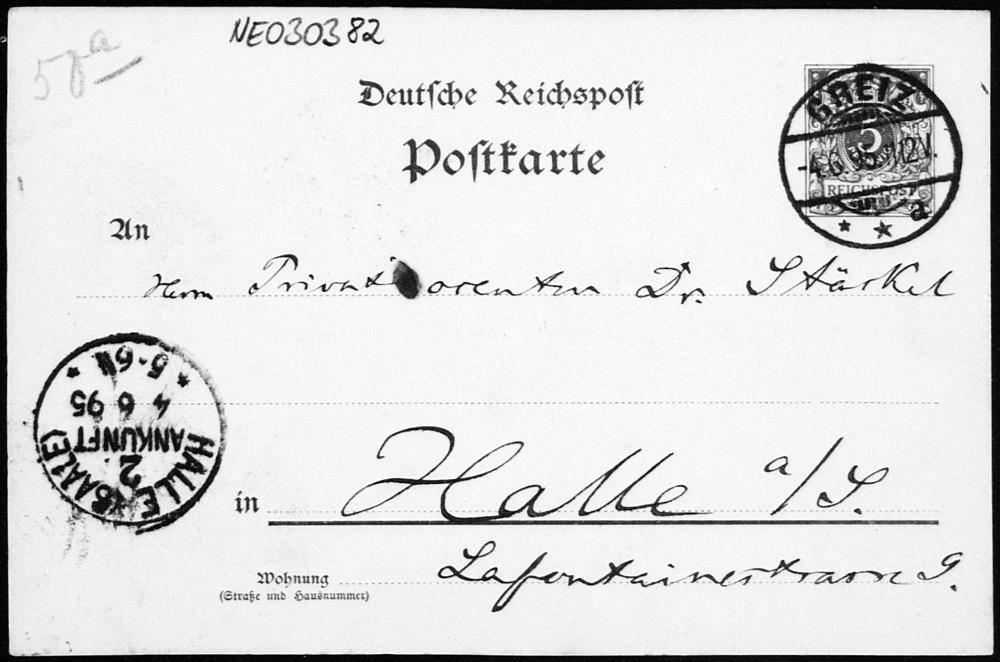 NE030382
57a
Deutsche Reichspost
Postkarte
GREIZ
5
-4.6.95. 12V.
REICHSPOST
* * a
An
Herrn Privatdocenten Dr. Stäckel
HALLE (SAALE)
2
ANKUNFT
4 6 95
* 5-6N *
in Halle a/S.
Wohnung Lafontainestrasse 9.
(Straße und Hausnummer)